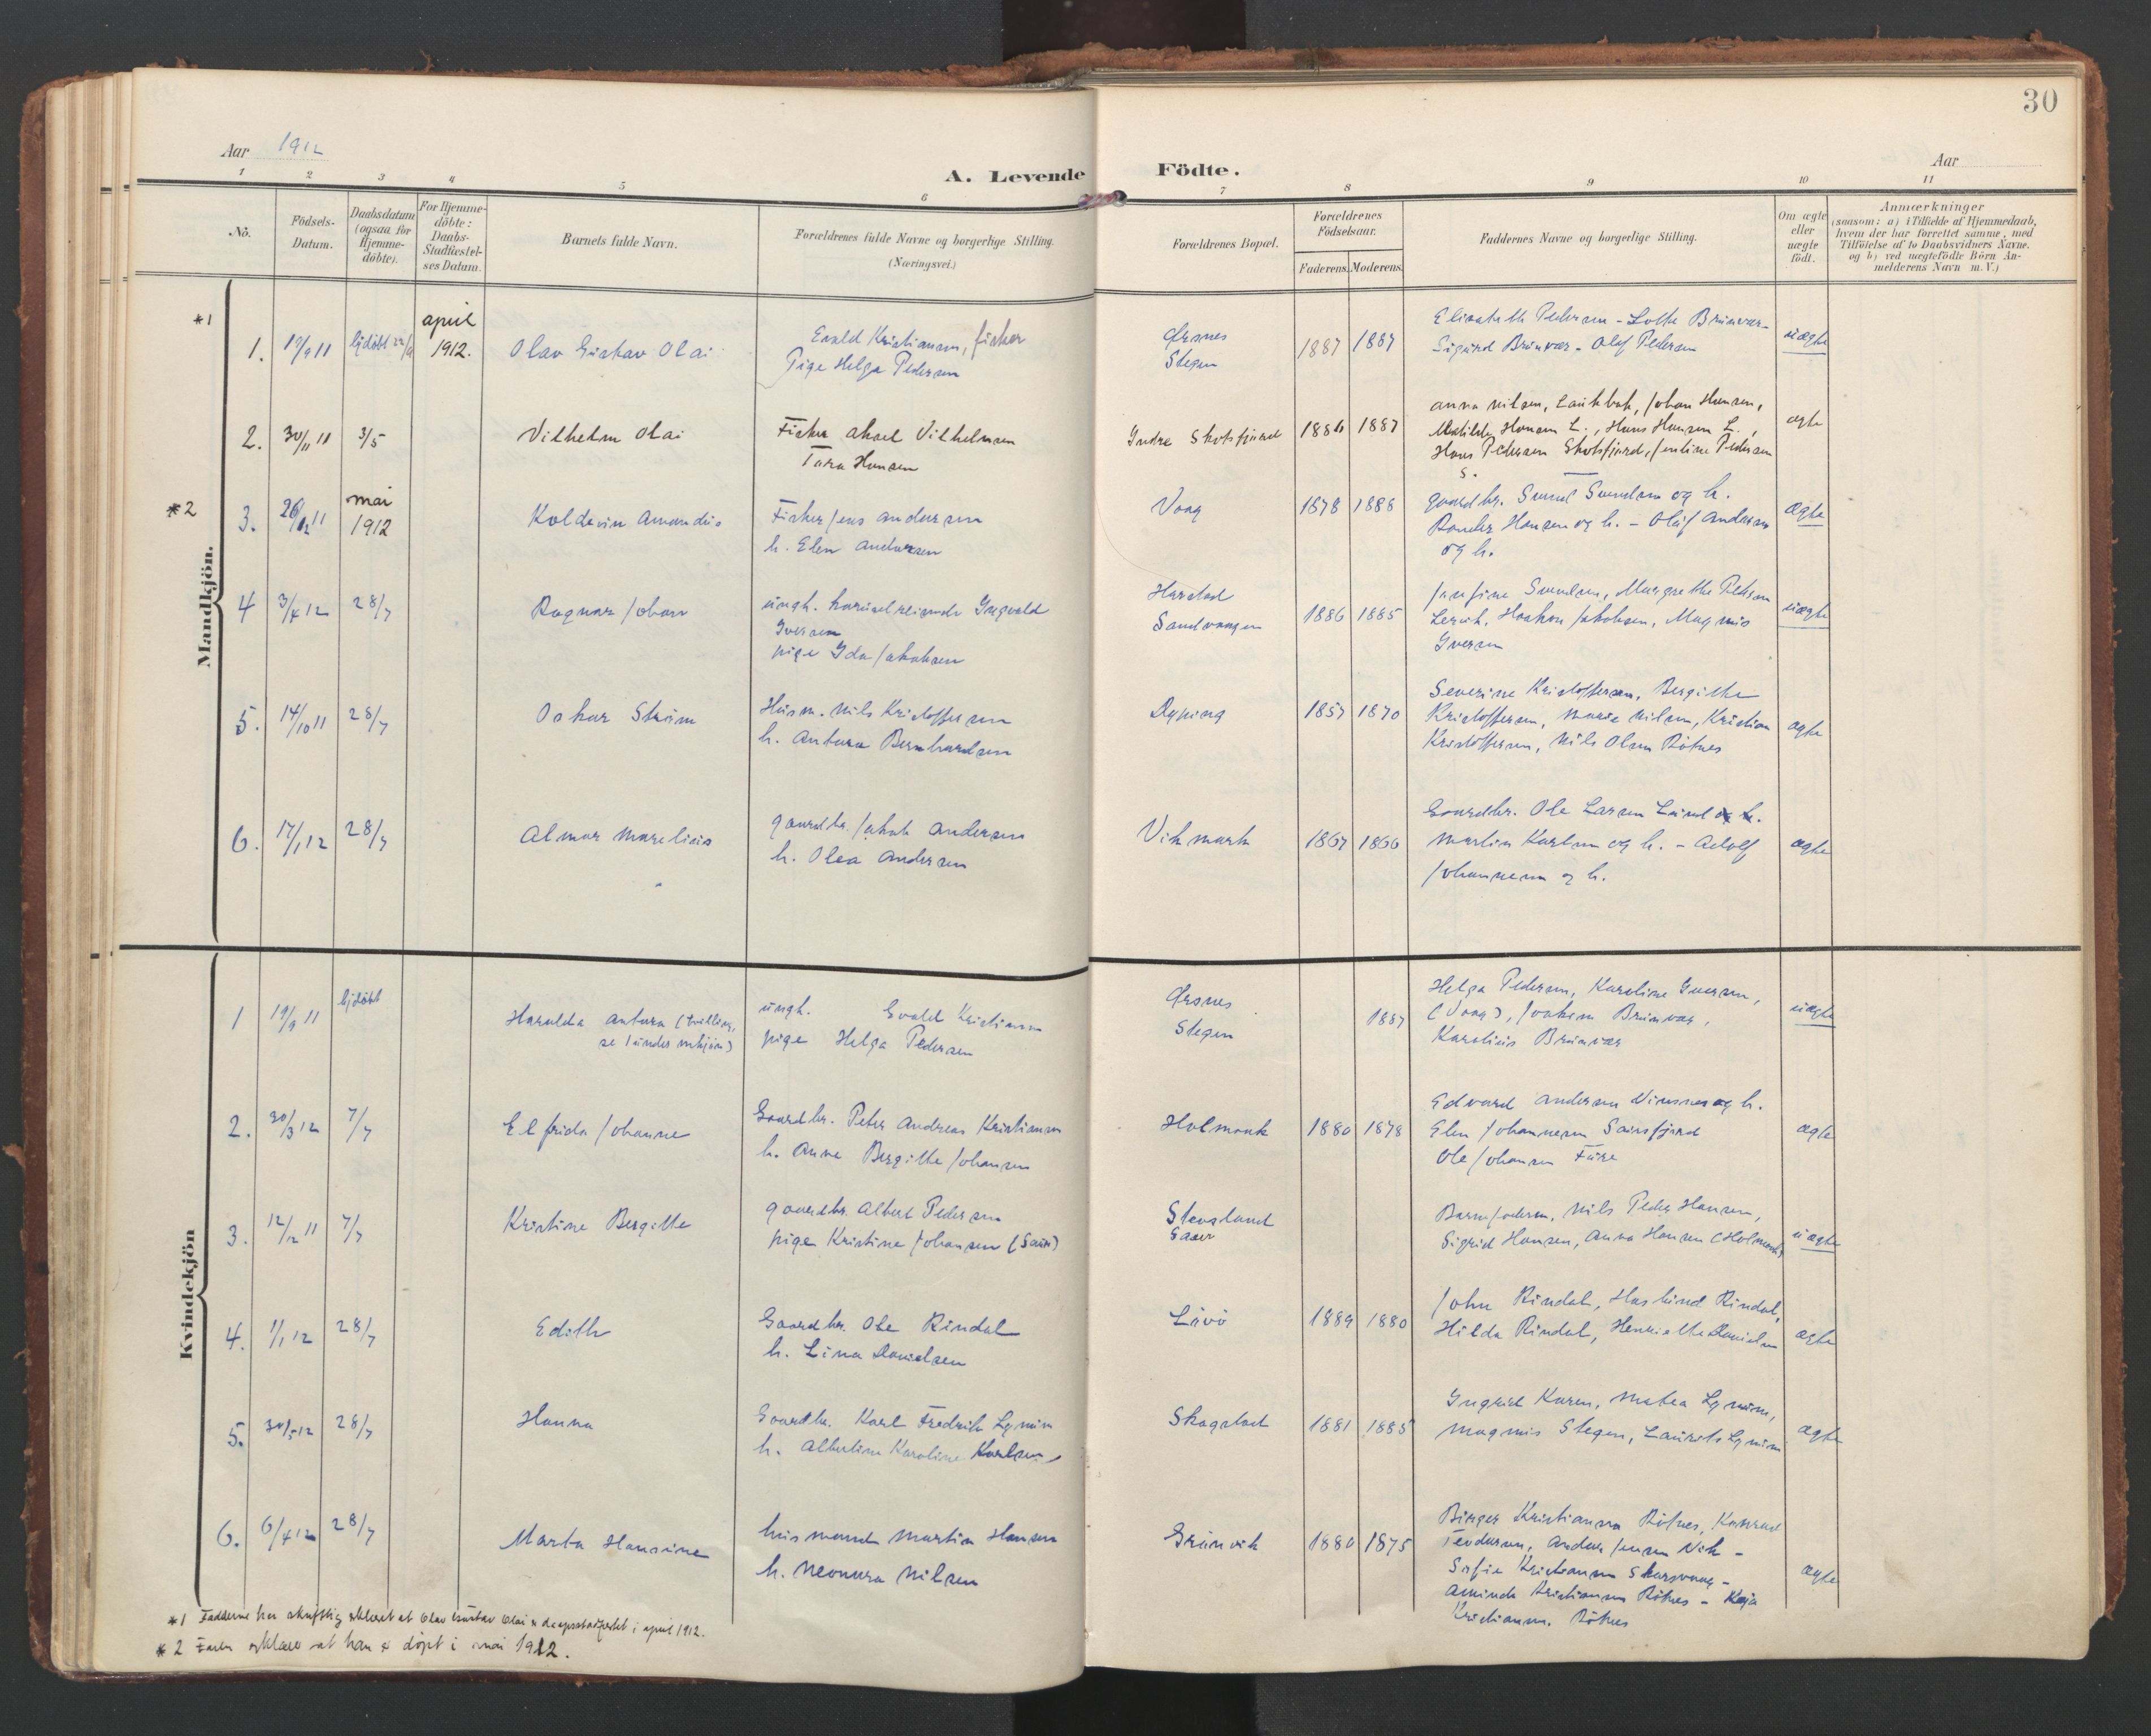 30
Aar 1912
A. Levende Födte.
Aar
1 2 3 4 5 6 7 8 9 10 11
No.
Födsels-
Datum.
Daabsdatum
(ogsaa for
Hjemme-
döbte).
For Hjemme-
döbte:
Daabs-
Stadfæstel-
ses Datum.
Barnets fulde Navn.
Forældrenes fulde Navne og borgerlige Stilling.
(Næringsvei.)
Forældrenes Bopæl.
Forældrenes
Födselsaar.
Faderens. Moderens.
Faddernes Navne og borgerlige Stilling.
Om ægte
eller
uægte
födt.
Anmærkninger
(saasom: a) i Tilfælde af Hjemmedaab,
hvem der har forrettet samme, med
Tilföielse af to Daabsvidners Navne.
og b) ved uægtefödte Börn An-
melderens Navn m. V.)
Mandkjön.
*1
1. 19/9 11 hjdöbt april
1912. Olav Gustav Olai
Evald Kristiansen, fisker
Pige Helga Pedersen
Stegen
1887 1887
Elisabeth Pedersen - Lotte Brunvær-
Sigurd Brunvær - Olaf Pedersen
uægte
2. 30/11 11 3/5 Vilhelm Olai
Fisker Aksel Vilhelmsen
Tora Hansen
Indre Skotsfjord 1886 1887
Anna Nilsen, Laukbak, Johan Hansen,
Matilde Hansen L., Hans Hansen L.,
Hans Pedersen Skotsfjord, Jentine Pedersen
S.
ægte
*2
3. 26/12 11 mai
1912 Koldevin Amandus
Fisker Jens Andersen
h. Elen Andersen
Vaag 1878 1888
gaardbr. Svend Svendsen og h.
Hansen og h. - Olaf Andersen
og h.
Ægte
4 3/4 12 28/7 Ragnar Johan
ungk. Ingvald
Iversen
pige Ida Jakobsen
Harstad
Sandvaagen
1886 1885
Svendsen, Margrethe Pedersen
Leivik, Haakon Jakobsen, Magnus
Iversen
uægte
5. 14/10 11 28/7 Oskar Strøm
Husm. Nils Kristoffersen
h. Antora Bernhardsen
Dyping 1857 1870
Severine Kristoffersen, Bergitte
Kristoffersen, Marie Nilsen, Kristian
Kristoffersen, Nils Olsen Rötnes
ægte
6. 17/1 12 28/7 Almar Marelius
gaardbr. Jakob Andersen
h. Olea Andersen
Vikmark 1867 1866
Gaardbr. Ole Larsen Lund og h.
Martin Karlsen og h. - Adolf
Johannesen og h.
ægte
Kvindekjön
1 19/9 11 hjdöbt
Haralda Antora (tvilling,
se 1 under mkjön)
ungk. Evald Kristiansen
pige Helga Pedersen
Stegen
1887
Helga Pedersen, Karoline Iversen,
(Vaag), Joakim Brunvær,
Karolius Brunvær
uægte
2. 30/3 12 7/7 Elfrida Johanne
Gaardbr. Peter Andreas Kristiansen
h. Anna Bergitte Johansen
Holmaak 1880 1878
Edvard Andersen Vinsnes og h.
Elen Johannesen
Ole Johansen Fure
ægte
3. 12/12 11 7/7 Kristine Bergitte
gaardbr. Albert Pedersen
pige Kristine Johansen
Barnefaderen, Nils Peder Hansen,
Sigrid Hansen, Anna Hansen (Holmaak)
uægte
4. 1/1 12 28/7 Edith
Gaardbr. Ole Rindal
h. Lina Danielsen
Lövö 1889 1880
John Rindal, Haslund Rindal,
Hilda Rindal, Henriette Danielsen
ægte
5. 30/5 12 28/7 Hanna
Gaardbr. Karl Fredrik Lynum
h. Albertine Karoline Karlsen
Skagstad 1881 1885
Ingrid Karen, Matea Lynum,
Magnus Stegen, Laurits Lynum
ægte
6. 6/4 12 28/7 Marta Hansine
husmand Martin Hansen
h. Neonora Nilsen
Grunvik 1880 1875
Birger Kristiansen Rötnes, Konrad
Teodorsen, Anders Jensen Vik -
Sofie Kristiansen Skarsvaag -
Kristiansen Rötnes - Kaja
Kristiansen. Rötnes
ægte
*1 Fadderne har skriftlig erklæret at Olav Gustav Olai er daapsstadfestet i april 1912.
*2 Faren erklærer at han er döpt i mai 1912.